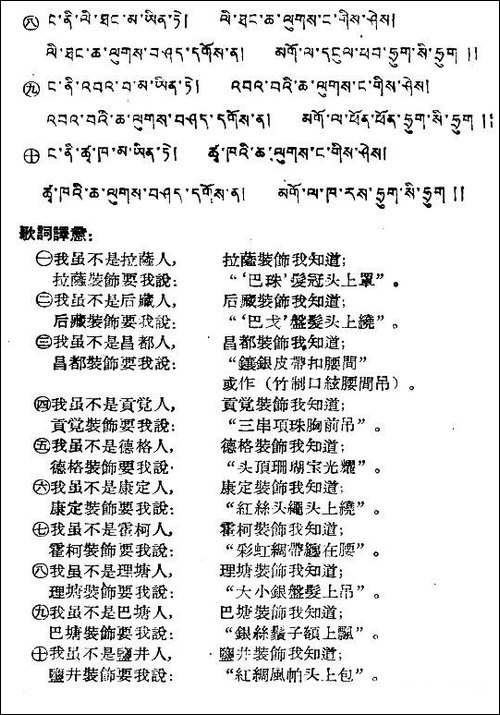 ㊇ ང་ནི་ལི་ཐང་མ་ཡིན་ཏེ། ལི་ཐང་ཆ་ལུགས་ང་གིས་ཤེས།
ལི་ཐང་ཆ་ལུགས་བཤད་དགོས་ན། མགོ་ལ་དངུལ་ཕབ་ཧྲུག་སི་ཧྲུག །།
㊈ ང་ནི་འབའ་བ་མ་ཡིན་ཏེ། འབའ་བའི་ཆ་ལུགས་ང་གིས་ཤེས།
འབའ་བའི་ཆ་ལུགས་བཤད་དགོས་ན། མགོ་ལ་ཕོན་ཕོན་ཧྲུག་སི་ཧྲུག །།
㊉ ང་ནི་ཚྭ་ཁ་མ་ཡིན་ཏེ། ཚྭ་ཁའི་ཆ་ལུགས་ང་གིས་ཤེས།
ཚྭ་ཁའི་ཆ་ལུགས་བཤད་དགོས་ན། མགོ་ལ་ཁ་དས་ཧྲུག་སི་ཧྲུག །།
歌詞譯意:
㊀我虽不是拉薩人, 拉薩裝飾我知道;
拉薩裝飾要我說: “‘巴珠’髮冠头上罩”。
㊁我虽不是后藏人, 后藏裝飾我知道;
后藏裝飾要我說: “‘巴戈’盤髮头上繞”。
㊂我虽不是昌都人, 昌都裝飾我知道;
昌都裝飾要我說: “鑲銀皮帶扣腰間”
或作(竹制口絃腰間吊)。
㊃我虽不是貢覚人, 貢覚裝飾我知道;
貢覚裝飾要我說: “三串項珠胸前吊”。
㊄我虽不是德格人, 德格裝飾我知道;
德格裝飾要我說· “头頂珊瑚宝光耀”。
㊅我虽不是康定人, 康定裝飾我知道;
康定裝飾要我說: “紅絲头繩头上繞”。
㊆我虽不是霍柯人, 霍柯裝飾我知道;
霍柯裝飾要我說: “彩虹綢帶纏在腰”。
㊇我虽不是理塘人, 理塘裝飾我知道;
理塘裝飾要我說: “大小銀盤髮上吊”。
㊈我虽不是巴塘人, 巴塘裝飾我知道;
巴塘裝飾要我說: “銀絲鬚子額上飄”。
㊉我虽不是鹽井人, 鹽井裝飾我知道;
鹽井裝飾要我說: “紅綢風帕头上包”。